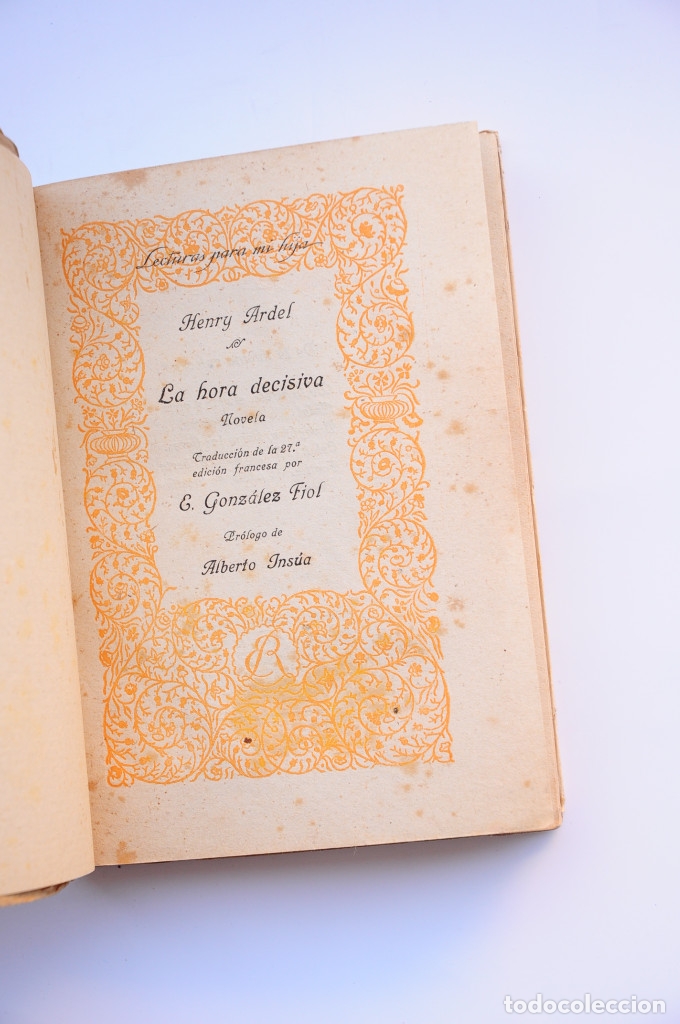 Lecturas para mi hija
Henry Ardel
La hora decisiva
Novela
Traducción de la 27.ª
edición francesa por
E. González Fiol
Prólogo de
Alberto Insúa
R
todocoleccion